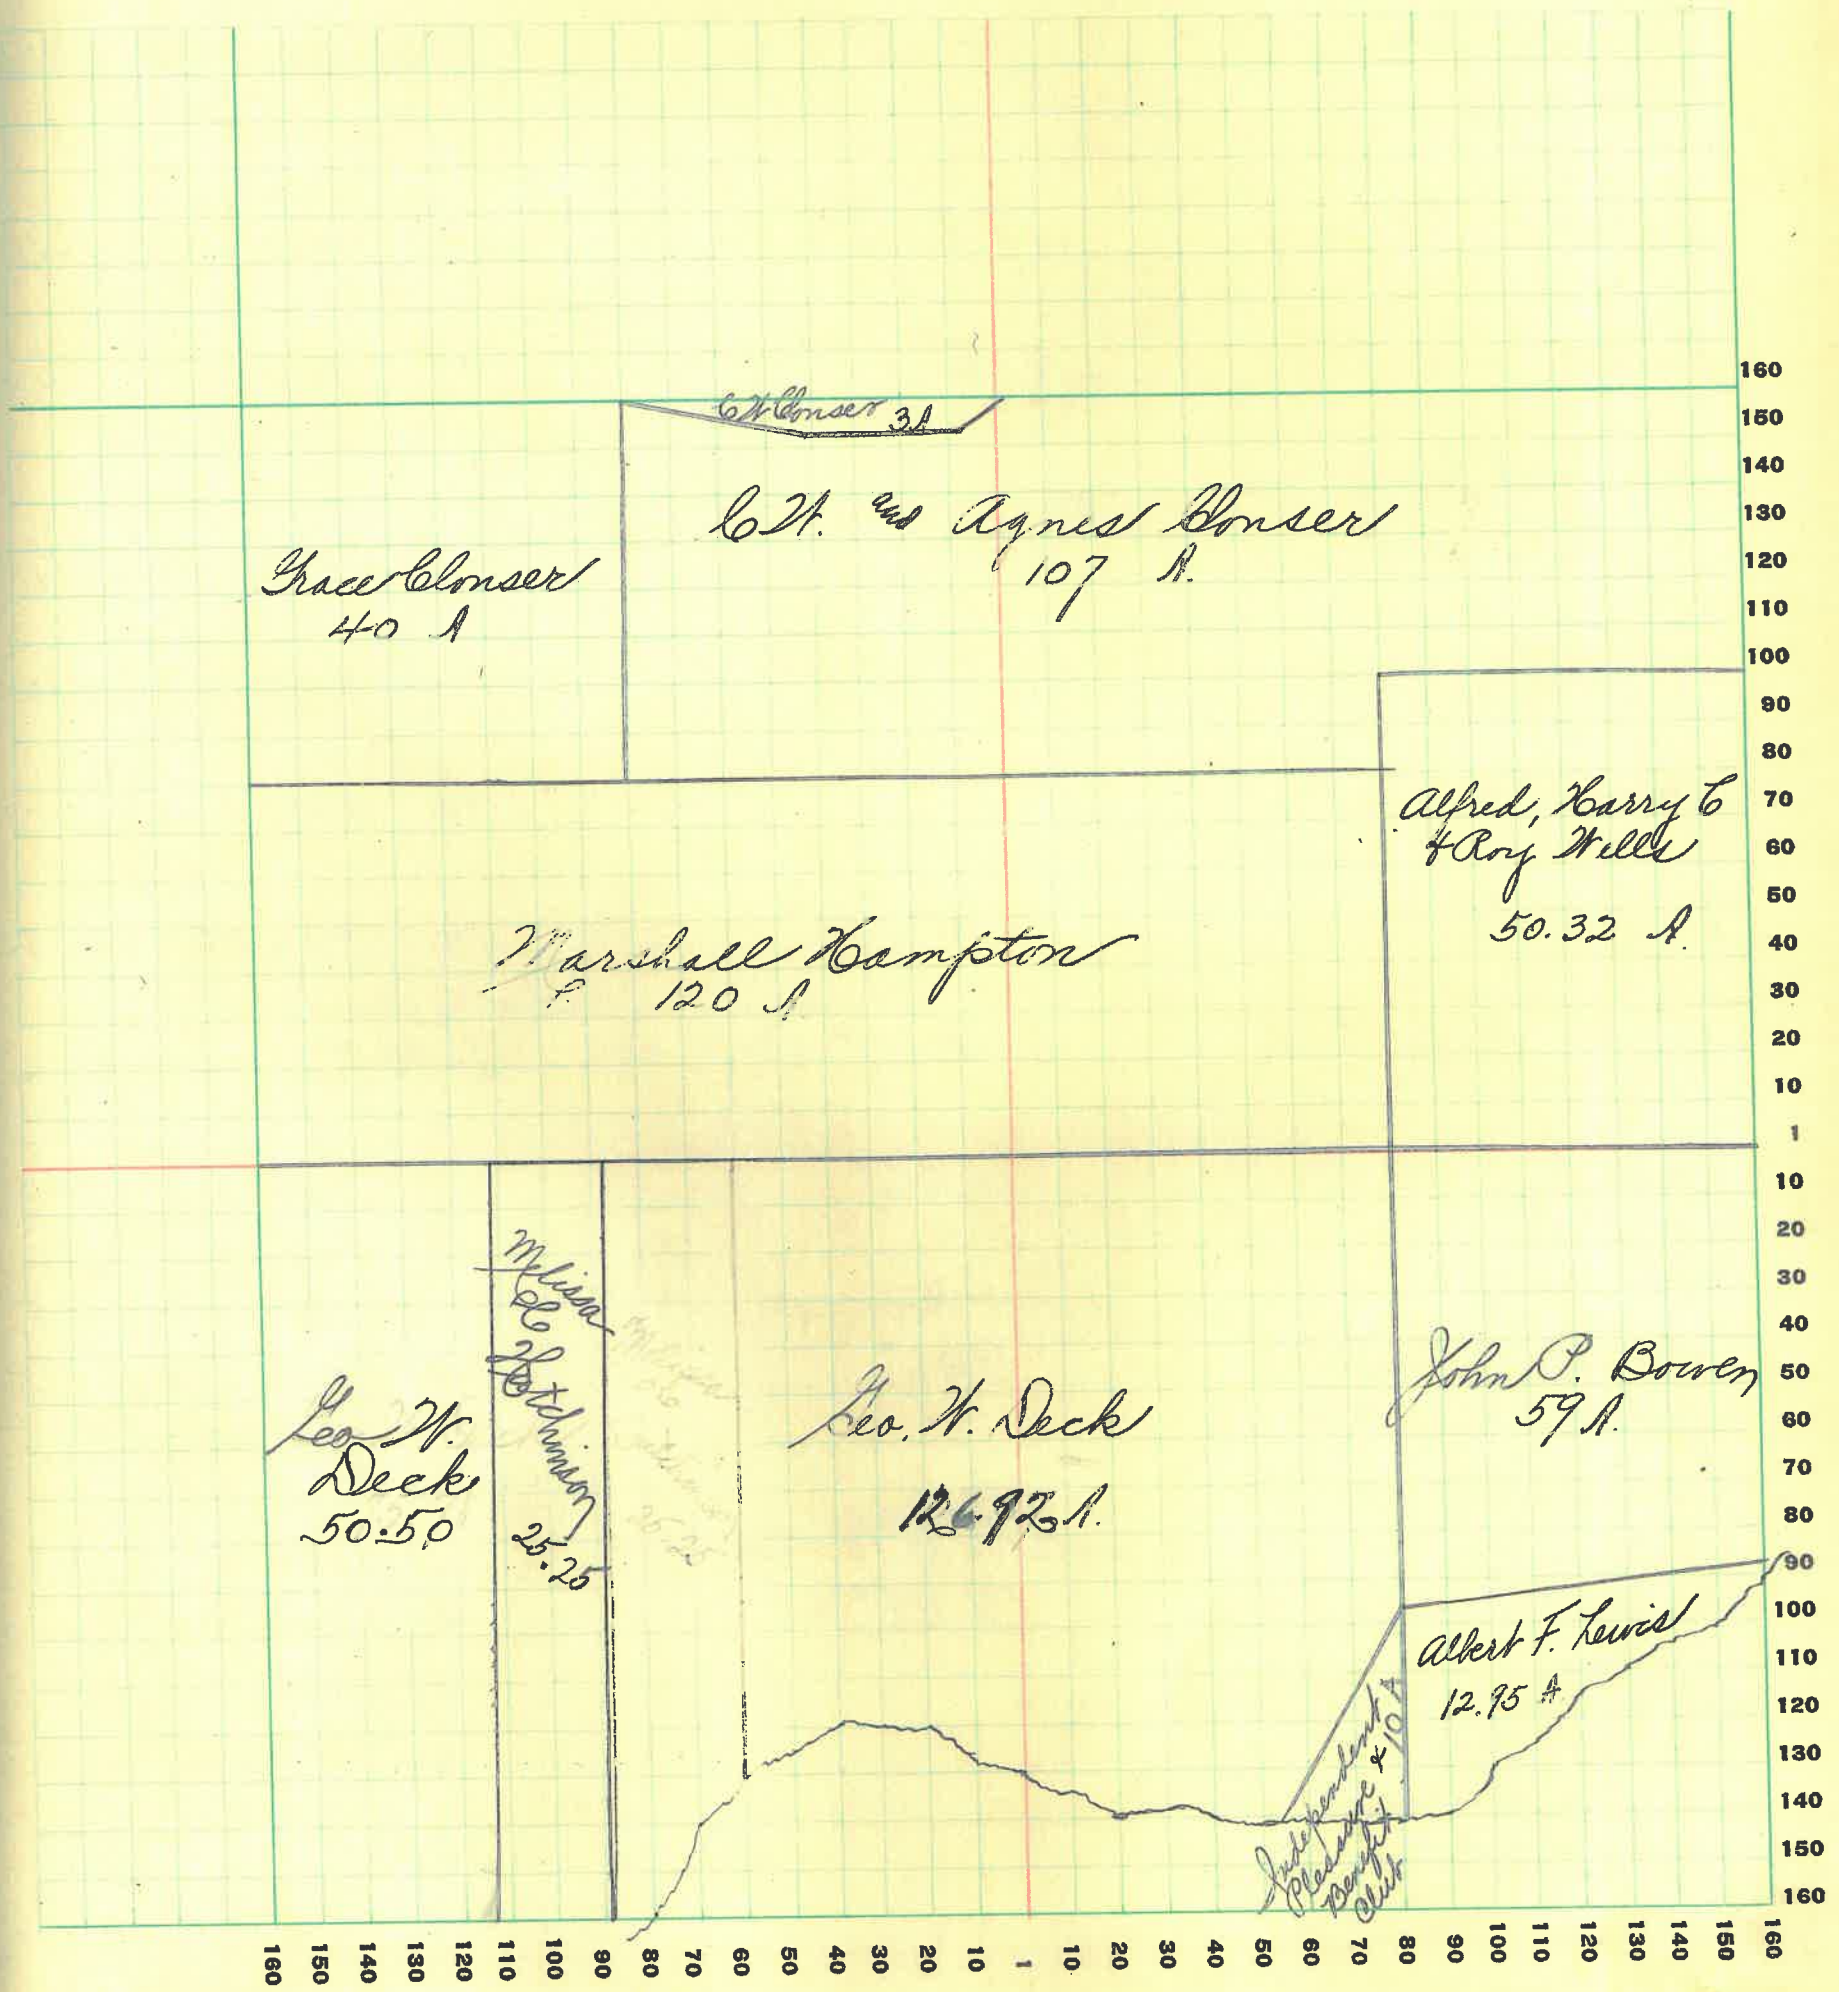 C W Clonser 3 A
C W. and Agnes Clonser
107 A.
Grace Clonser
40 A
Alfred, Harry C
& Roy Wells
50.32 A.
Marshall Hampton
120 A
Geo W.
Deck
50.50
Melissa
Hotchinson
25.25
Melissa
25.25
Geo. W. Deck
126.92 A.
John P. Bowen
59 A.
Albert F. Lewis
12.95 A
Independent
Pleasure &
Benefit
Club
10 A
160
150
140
130
120
110
100
90
80
70
60
50
40
30
20
10
1
10
20
30
40
50
60
70
80
90
100
110
120
130
140
150
160
160 150 140 130 120 110 100 90 80 70 60 50 40 30 20 10 1 10 20 30 40 50 60 70 80 90 100 110 120 130 140 150 160